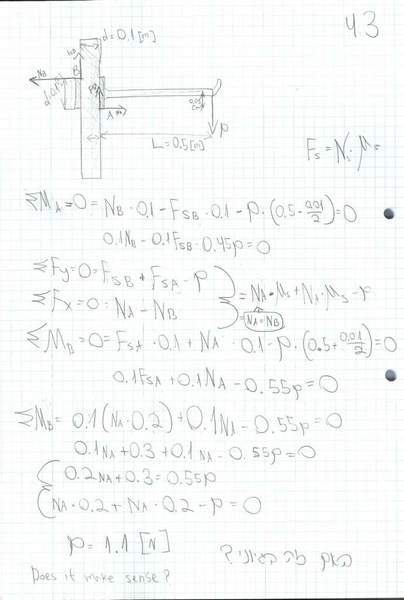 4.3
d=0.1[m]
N_B
B
A
0.05
P
L=0.5[m]
F_s = N_i · μ_s
ΣM_A=0= N_B · 0.1 - F_SB · 0.1 - P · (0.5 - 0.01/2)=0
0.1N_B - 0.1F_SB · 0.45P=0
ΣF_y=0=F_SB + F_SA - P
= N_A·μ_s + N_A·μ_s - P
ΣF_x=0= N_A - N_B
= N_A=N_B
ΣM_B=0=F_SA · 0.1 + N_A · 0.1 - P · (0.5+0.01/2)=0
0.1F_SA + 0.1N_A - 0.55P=0
ΣM_B= 0.1(N_A·0.2) + 0.1N_A - 0.55P=0
0.1N_A + 0.3 + 0.1N_A - 0.55P=0
0.2N_A + 0.3 = 0.55P
N_A·0.2 + N_A·0.2 - P = 0
P = 1.1 [N]
האם זה הגיוני?
Does it make sense?